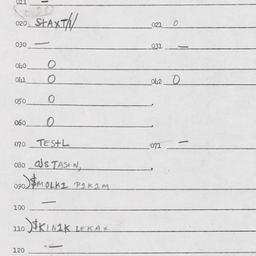 011 —
020 StAXT 021 0
030 — 031 —
040 0
041 0 042 0
050 0
060 0
070 TEStL 071 —
080
090 )$MOLK1 P1K1M
100 —
110 )$KIN1K LEKAK
120 —